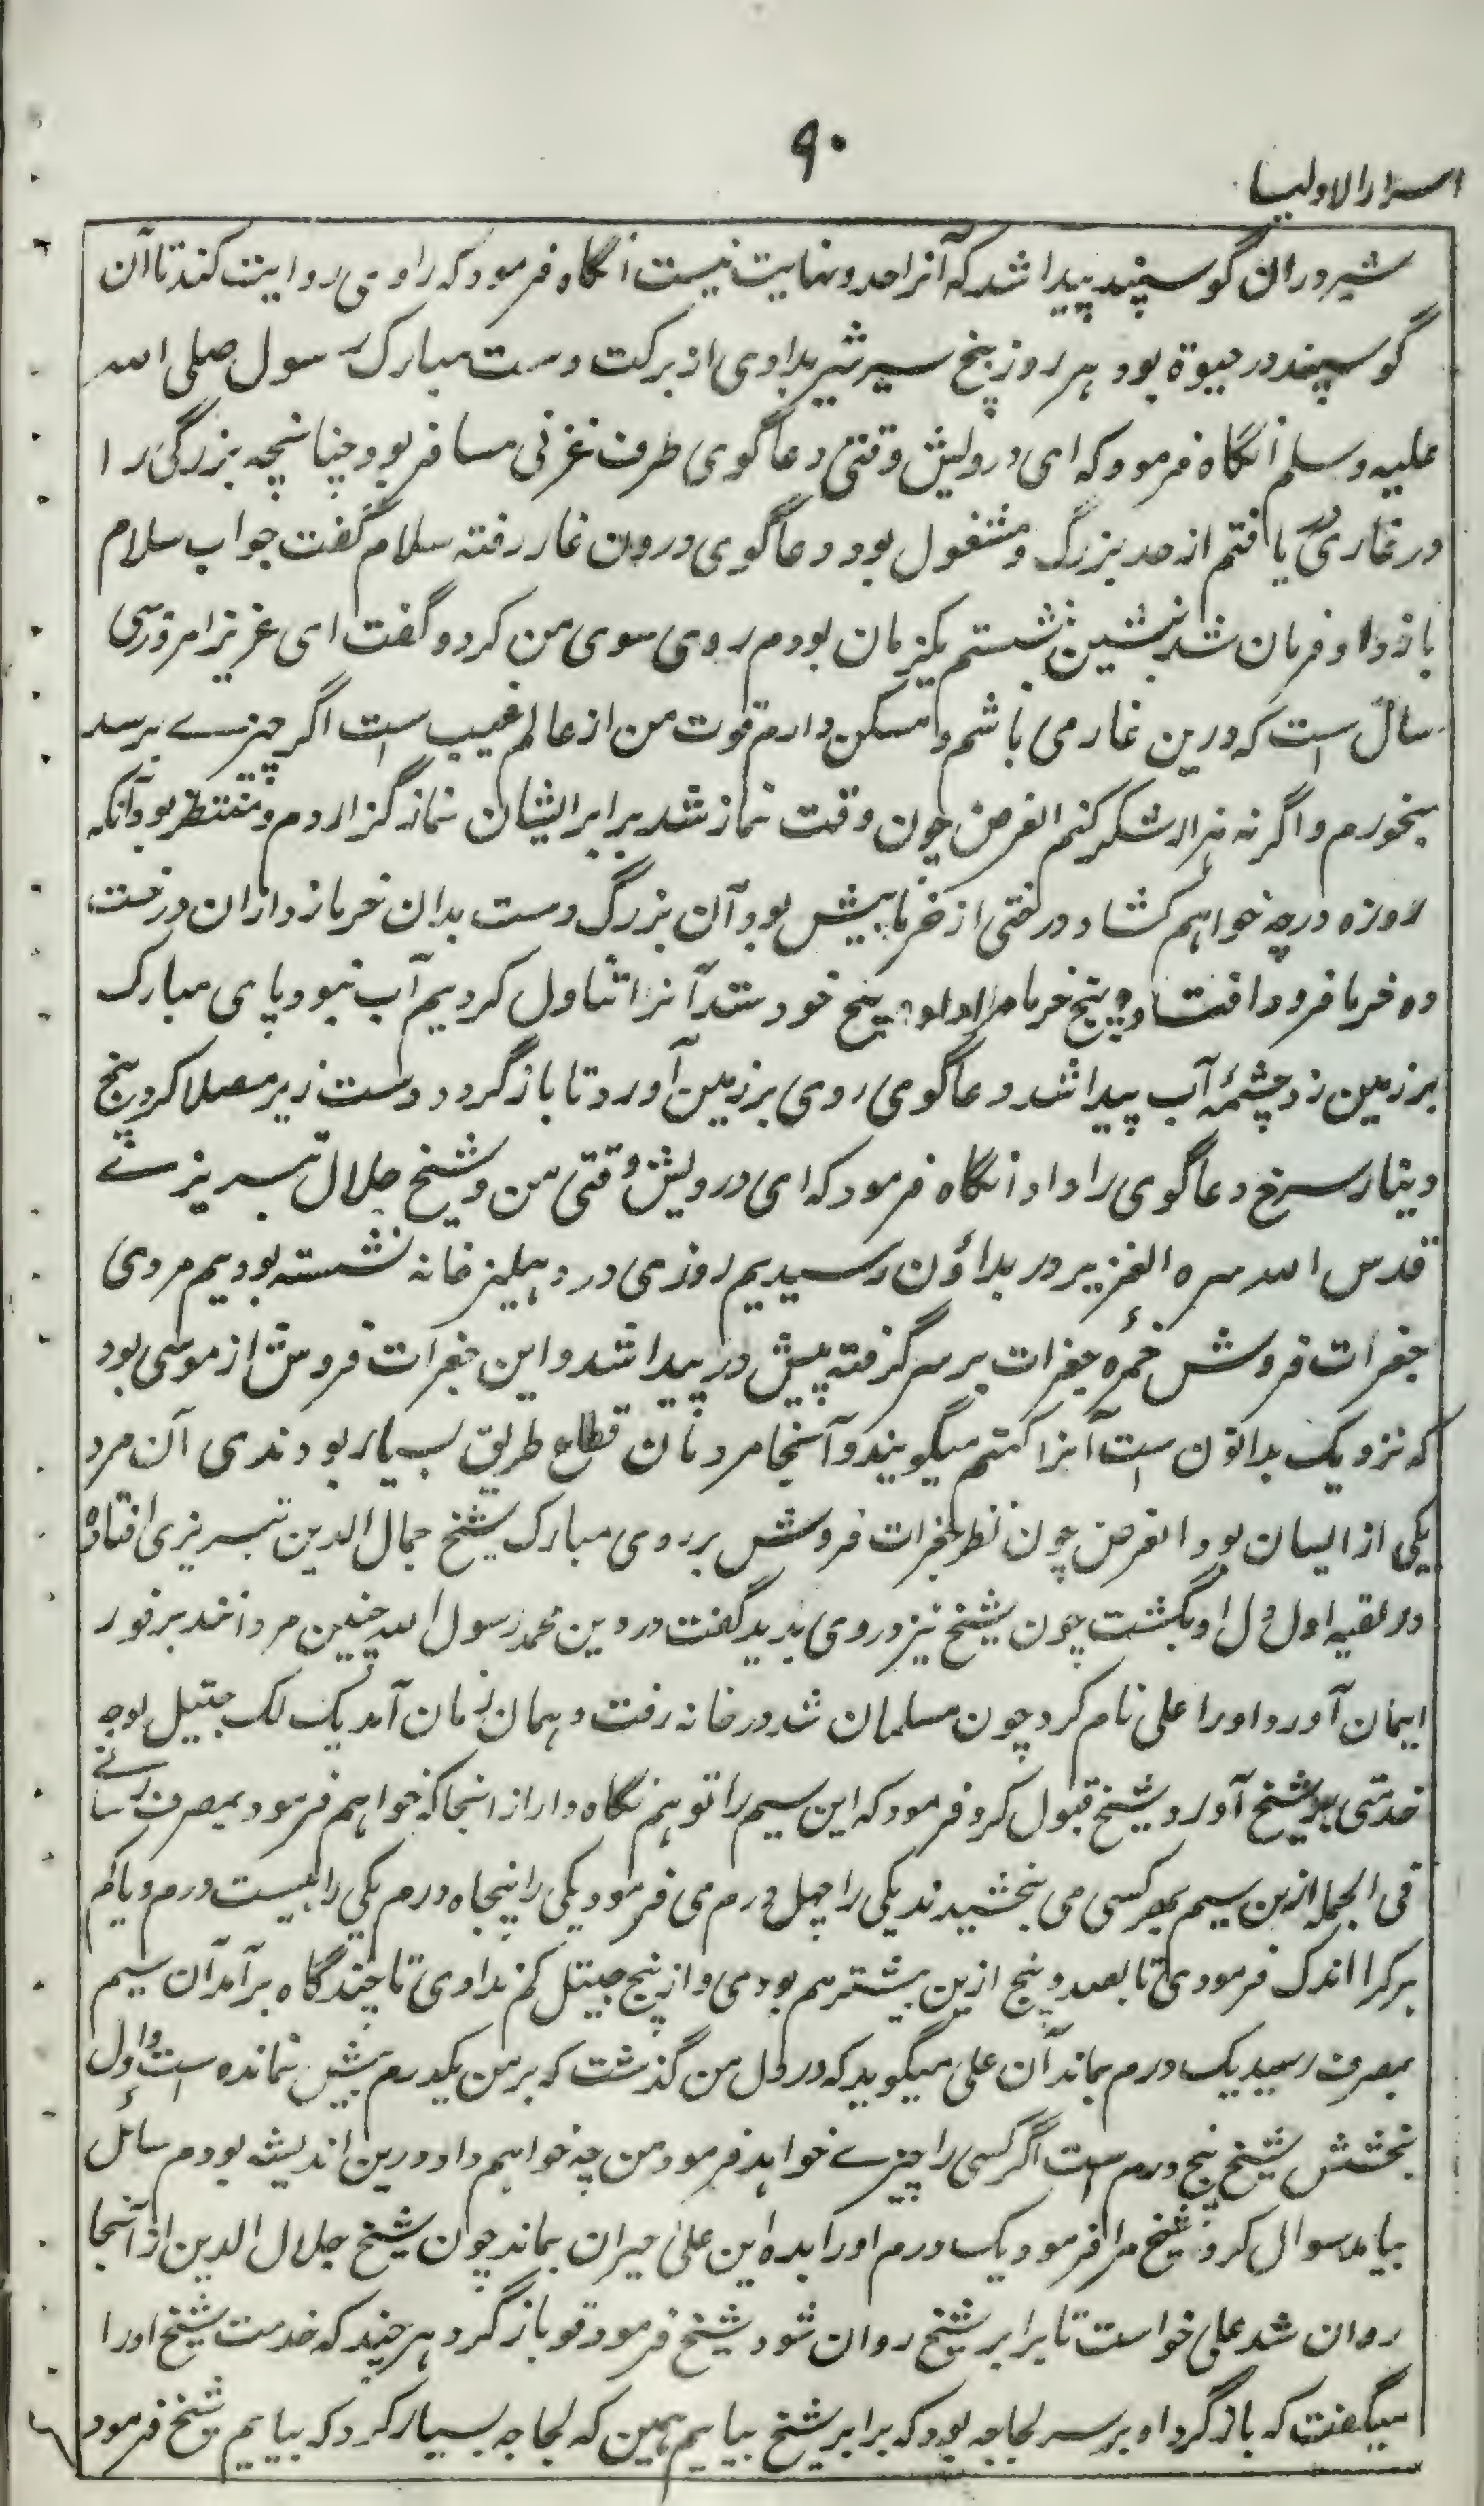 ۹۰
اسرار الاولیا
شیر در ان گوسپند پیدا شد که آنرا حد و نهایت نیست آنگاه فرمود که راوی روایت کند تا آن
گوسپند در حیوة بود هر روز پنج سیر شیر بدادی از برکت دست مبارک رسول صلی الله
علیه وسلم آنگاه فرمود که ای درویش وقتی دعاگوی طرف غزنی مسافر بود چنانچه بزرگی را
در غاری در یافتم از حد بزرگ و مشغول بود دعاگوی درون غار رفته سلام گفت جواب سلام
باز داد و فرمان شد بنشین نشستم یکزمان بودم روی سوی من کرد و گفت ای عزیز امروز سی
سال است که درین غار می باشم و مسکن دارم قوت من از عالم غیب است اگر چیزے برسد
بخورم و اگر نه شکر کنم الغرض چون وقت نماز شد برابر ایشان نماز گزاردم و منتظر بود آنکه
روزه درچه خواهم کشاد درختی از خرما پیش بود آن بزرگ دست بدان خرما زد ازان درخت
ده خرما فرود افتاد و پنج خرما مرا داد پنج خود ستد آنرا تناول کردیم آب نبود پای مبارک
بر زمین زد چشمۀ آب پیدا شد دعاگوی روی بر زمین آورد تا بازگردد دست زیر مصلا کرد پنج
دینار سرخ دعاگوی را داد آنگاه فرمود که ای درویش وقتی من و شیخ جلال تبریزے
قدس الله سره العزیز در بداؤن رسیدیم روزی در دهلیز خانه نشسته بودیم مردی
جغرات فروش خمرۀ جغرات بر سر گرفته پیش در پیدا شد و این جغرات فروش از موسی بود
که نزدیک بداؤن است آنرا کتهم میگویند و آنجا مردمان قطاع طریق بسیار بودندی آن مرد
یکی از ایشان بود الغرض چون نظر جغرات فروش بر روی مبارک شیخ جمال الدین تبریزی افتاد
در لقیه اول دل او بگشت چون شیخ نیز در وی بدید گفت در دین محمد رسول الله چنین مردانند بر فور
ایمان آورد او را علی نام کرد چون مسلمان شد در خانه رفت و همان زمان آمد یک لک جیتل بوجه
خدمتی بر شیخ آورد شیخ قبول کرد فرمود که این سیم را تو هم نگاه دار از اینجا که خواهم فرمود بمصرف رسانے
فی الجمله ازین سیم بهر کسی می بخشیدند یکی را چهل درم می فرمود یکی را پنجاه درم یکی را بیست درم و یا کم
هر کرا اندک فرمودی تا بصد و پنج ازین بیشتر هم بودی و از پنج جیتل کم ندادی تا چندگاه برآمد آن سیم
بمصرف رسید یک درم بماند آن علی میگوید که در دل من گذشت که بر من یکدرم بیش نمانده است و اول
بخشش شیخ پنج درم است اگر کسی را چیزے خواهد فرمود من چه خواهم داد درین اندیشه بودم سائل
بیامد سوال کرد شیخ مرا فرمود یک درم او را بده این علی حیران بماند چون شیخ جلال الدین از آنجا
روان شد علی خواست تا برابر شیخ روان شود شیخ فرمود تو بازگرد هر چند که خدمت شیخ او را
میگفت که بازگرد او بر سر لجاجه بود که برابر شیخ بیایم همین که لجاجه بسیار کرد که بیایم شیخ فرمود